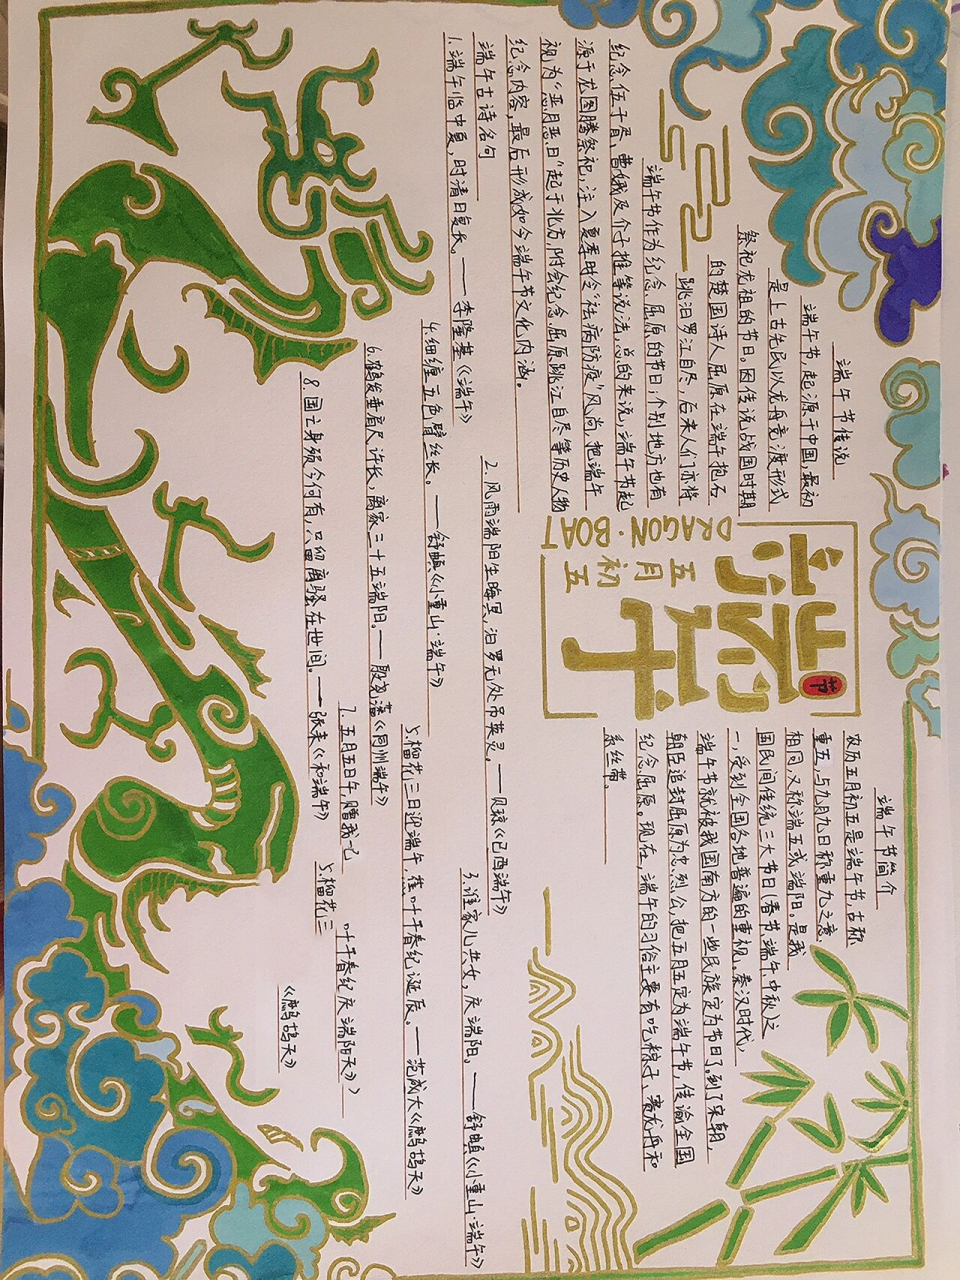 端午节传说
端午节起源于中国,最初
是上古先民以龙舟竞渡形式
祭祀龙祖的节日。因传说战国时期
的楚国诗人屈原在端午抱石
跳汨罗江自尽,后来人们亦将
端午节作为纪念屈原的节日;个别地方也有
纪念伍子胥、曹娥及介子推等说法,总的来说,端午节起
源于龙图腾祭祀,注入夏季时令“祛病防疫”风尚,把端午
视为“恶月恶日”起于北方,附会纪念屈原跳江自尽等历史人物
纪念内容,最后形成如今端午节文化内涵。
端午
节
五月初五
DRAGON·BOAT
端午节简介
农历五月初五是端午节,古称
重五,与九月九日称重九之意
相同,又称端五或端阳。是我
国民间传统三大节日(春节端午中秋)之
一,受到全国各地普遍的重视。秦汉时代,
端午节就被我国南方的一些民族定为节日了。到了宋朝,
朝臣追封屈原为忠烈公,把五月五定为端午节,传谕全国
纪念屈原。现在,端午的习俗主要有吃粽子、赛龙舟和
系丝带。
端午古诗名句
1.端午临中夏,时清日复长。——李隆基《端午》
2.风雨端阳生晦冥,汨罗无处吊英灵。——贝琼《己酉端午》
3.谁家儿共女,庆端阳。——舒頔《小重山·端午》
4.细缠五色臂丝长。——舒頔《小重山·端午》
5.榴花三日迎端午,蕉叶千春纪诞辰。——范成大《鹧鸪天》
6.鹤发垂肩尺许长,离家三十五端阳。——殷尧藩《同州端午》
7.五月五日午,赠我一
5.榴花三
叶千春纪庆端阳天》》
8.国亡身殒今何有,只留离骚在世间。——张耒《和端午》
《鹧鸪天》